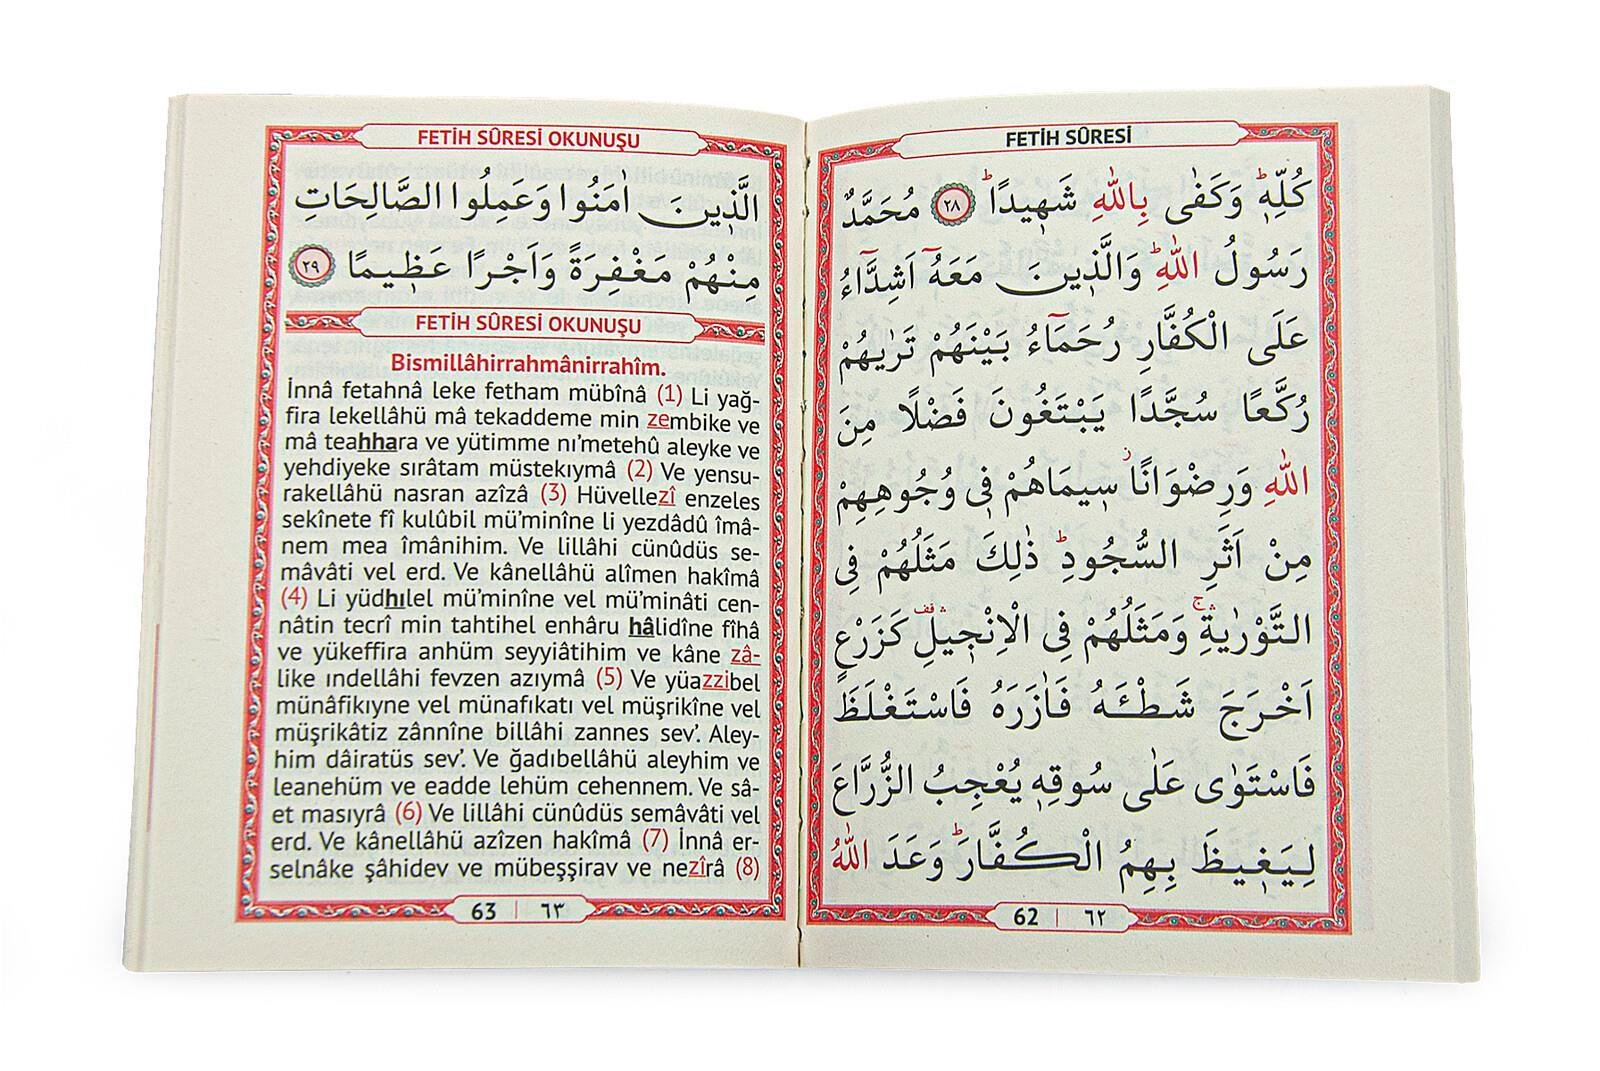 FETİH SÛRESİ
كُلِّهٖۜ وَكَفٰى بِاللّٰهِ شَهٖيدًاۜ ﴿٢٨﴾ مُحَمَّدٌ
رَسُولُ اللّٰهِۜ وَالَّذٖينَ مَعَهُٓ اَشِدَّٓاءُ
عَلَى الْكُفَّارِ رُحَمَٓاءُ بَيْنَهُمْ تَرٰيهُمْ
رُكَّعًا سُجَّدًا يَبْتَغُونَ فَضْلًا مِنَ
اللّٰهِ وَرِضْوَانًاؗ سٖيمَاهُمْ فٖى وُجُوهِهِمْ
مِنْ اَثَرِ السُّجُودِۜ ذٰلِكَ مَثَلُهُمْ فِى
التَّوْرٰيةِۚۛ وَمَثَلُهُمْ فِى الْاِنْجٖيلِ۠ۛ كَزَرْعٍ
اَخْرَجَ شَطْـَٔهُ فَاٰزَرَهُ فَاسْتَغْلَظَ
فَاسْتَوٰى عَلٰى سُوقِهٖ يُعْجِبُ الزُّرَّاعَ
لِيَغٖيظَ بِهِمُ الْكُفَّارَۜ وَعَدَ اللّٰهُ
62 | ٦٢
FETİH SÛRESİ OKUNUŞU
الَّذٖينَ اٰمَنُوا وَعَمِلُوا الصَّالِحَاتِ
مِنْهُمْ مَغْفِرَةً وَاَجْرًا عَظٖيمًا ﴿٢٩﴾
FETİH SÛRESİ OKUNUŞU
Bismillâhirrahmânirrahîm.
İnnâ fetahnâ leke fetham mübînâ (1) Li yağ-
fira lekellâhü mâ tekaddeme min zembike ve
mâ teahhara ve yütimme nı’metehû aleyke ve
yehdiyeke sırâtam müstekıymâ (2) Ve yensu-
rakellâhü nasran azîzâ (3) Hüvellezî enzeles
sekînete fî kulûbil mü’minîne li yezdâdû îmâ-
nem mea îmânihim. Ve lillâhi cünûdüs se-
mâvâti vel erd. Ve kânellâhü alîmen hakîmâ
(4) Li yüdhılel mü’minîne vel mü’minâti cen-
nâtin tecrî min tahtihel enhâru hâlidîne fîhâ
ve yükeffira anhüm seyyiâtihim ve kâne zâ-
like ındellâhi fevzen azıymâ (5) Ve yüazzibel
münâfikıyne vel münafıkatı vel müşrikîne vel
müşrikâtiz zânnîne billâhi zannes sev’. Aley-
him dâiratüs sev’. Ve ğadıbellâhü aleyhim ve
leanehüm ve eadde lehüm cehennem. Ve sâ-
et masıyrâ (6) Ve lillâhi cünûdüs semâvâti vel
erd. Ve kânellâhü azîzen hakîmâ (7) İnnâ er-
selnâke şâhidev ve mübeşşirav ve nezîrâ (8)
63 | ٦٣